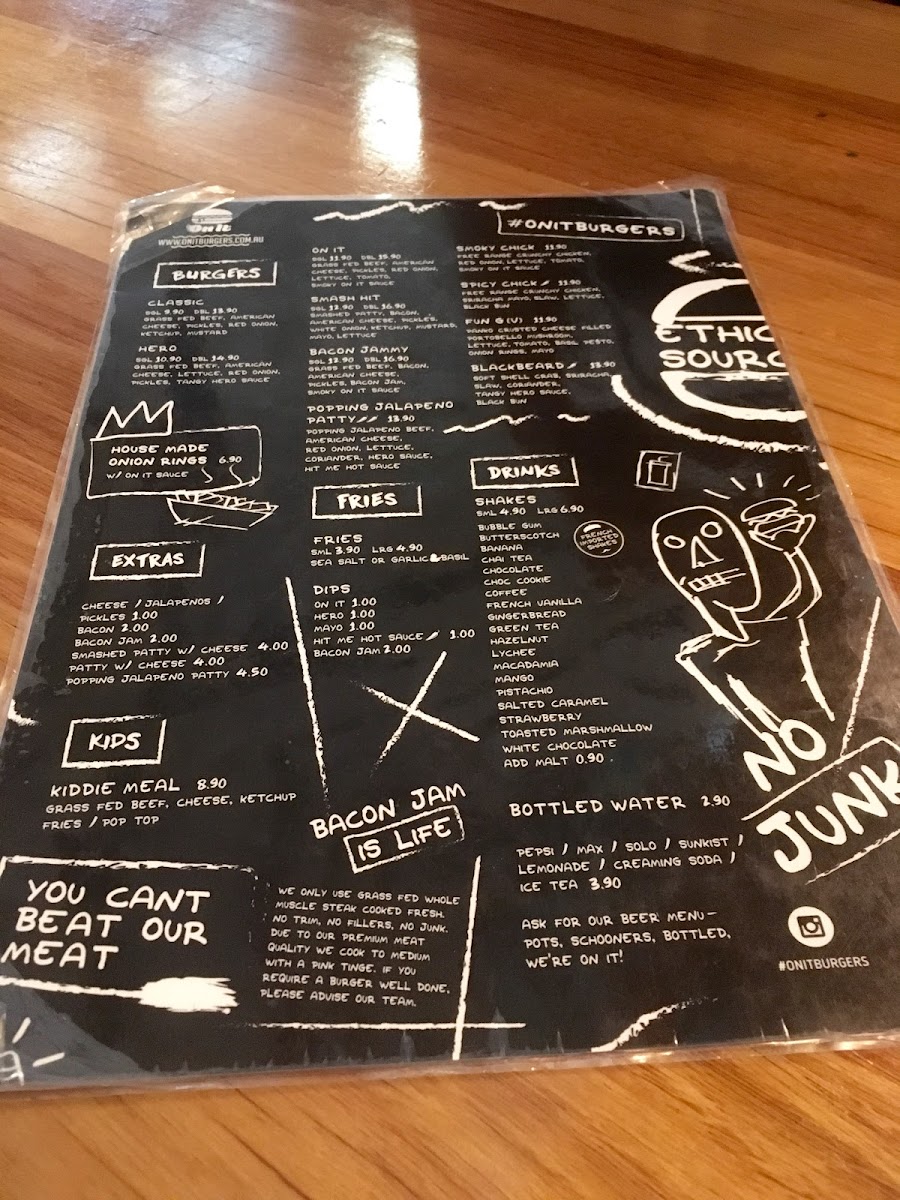 On It
WWW.ONITBURGERS.COM.AU
BURGERS
CLASSIC
SGL 9.90 DBL 13.90
GRASS FED BEEF, AMERICAN
CHEESE, PICKLES, RED ONION,
KETCHUP, MUSTARD
HERO
SGL 10.90 DBL 14.90
GRASS FED BEEF, AMERICAN
CHEESE, LETTUCE, RED ONION,
PICKLES, TANGY HERO SAUCE
HOUSE MADE
ONION RINGS 6.90
W/ ON IT SAUCE
EXTRAS
CHEESE / JALAPENOS /
PICKLES 1.00
BACON 2.00
BACON JAM 2.00
SMASHED PATTY W/ CHEESE 4.00
PATTY W/ CHEESE 4.00
POPPING JALAPENO PATTY 4.50
KIDS
KIDDIE MEAL 8.90
GRASS FED BEEF, CHEESE, KETCHUP
FRIES / POP TOP
YOU CANT
BEAT OUR
MEAT
ON IT
SGL 11.90 DBL 15.90
GRASS FED BEEF, AMERICAN
CHEESE, PICKLES, RED ONION,
LETTUCE, TOMATO,
SMOKY ON IT SAUCE
SMASH HIT
SGL 12.90 DBL 16.90
SMASHED PATTY, BACON,
AMERICAN CHEESE, PICKLES,
WHITE ONION, KETCHUP, MUSTARD,
MAYO, LETTUCE
BACON JAMMY
SGL 12.90 DBL 16.90
GRASS FED BEEF, BACON,
AMERICAN CHEESE,
PICKLES, BACON JAM,
SMOKY ON IT SAUCE
POPPING JALAPENO
PATTY 13.90
POPPING JALAPENO BEEF,
AMERICAN CHEESE,
RED ONION, LETTUCE,
CORIANDER, HERO SAUCE,
HIT ME HOT SAUCE
FRIES
FRIES
SML 3.90 LRG 4.90
SEA SALT OR GARLIC & BASIL
DIPS
ON IT 1.00
HERO 1.00
MAYO 1.00
HIT ME HOT SAUCE 1.00
BACON JAM 2.00
BACON JAM
IS LIFE
WE ONLY USE GRASS FED WHOLE
MUSCLE STEAK COOKED FRESH.
NO TRIM, NO FILLERS, NO JUNK.
DUE TO OUR PREMIUM MEAT
QUALITY WE COOK TO MEDIUM
WITH A PINK TINGE. IF YOU
REQUIRE A BURGER WELL DONE,
PLEASE ADVISE OUR TEAM.
#ONITBURGERS
SMOKY CHICK 11.90
FREE RANGE CRUNCHY CHICKEN,
RED ONION, LETTUCE, TOMATO,
SMOKY ON IT SAUCE
SPICY CHICK 11.90
FREE RANGE CRUNCHY CHICKEN,
SRIRACHA MAYO, SLAW, LETTUCE,
BLACK BUN
FUN G (V) 11.90
PANKO CRUSTED CHEESE FILLED
PORTOBELLO MUSHROOM,
LETTUCE, TOMATO, BASIL PESTO,
ONION RINGS, MAYO
BLACKBEARD 13.90
SOFT SHELL CRAB, SRIRACHA
SLAW, CORIANDER,
TANGY HERO SAUCE,
BLACK BUN
ETHIC
SOURC
DRINKS
SHAKES
SML 4.90 LRG 6.90
BUBBLE GUM
BUTTERSCOTCH
BANANA
CHAI TEA
CHOCOLATE
CHOC COOKIE
COFFEE
FRENCH VANILLA
GINGERBREAD
GREEN TEA
HAZELNUT
LYCHEE
MACADAMIA
MANGO
PISTACHIO
SALTED CARAMEL
STRAWBERRY
TOASTED MARSHMALLOW
WHITE CHOCOLATE
ADD MALT 0.90
FRENCH
IMPORTED
SHAKES
BOTTLED WATER 2.90
PEPSI / MAX / SOLO / SUNKIST /
LEMONADE / CREAMING SODA /
ICE TEA 3.90
ASK FOR OUR BEER MENU-
POTS, SCHOONERS, BOTTLED,
WE'RE ON IT!
NO
JUNK
#ONITBURGERS